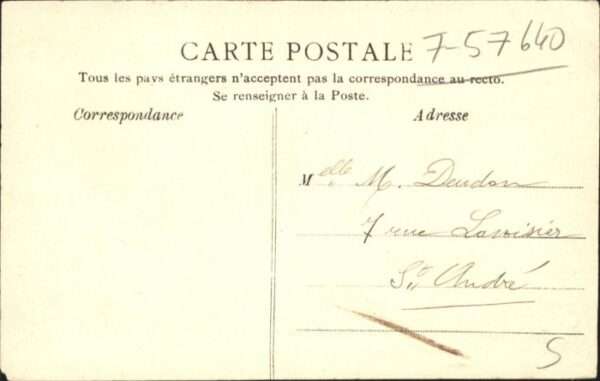 CARTE POSTALE 7-57640
Tous les pays étrangers n'acceptent pas la correspondance au recto.
Se renseigner à la Poste.
Correspondance
Adresse
Melle M. Dendon
7 rue Lavoisier
St André
S